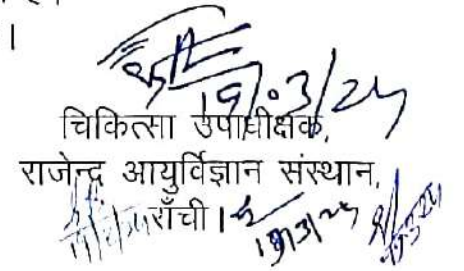 ।
19/03/24
चिकित्सा उपाधीक्षक,
राजेन्द्र आयुर्विज्ञान संस्थान,
राँची।
19/3/24
19/3/24